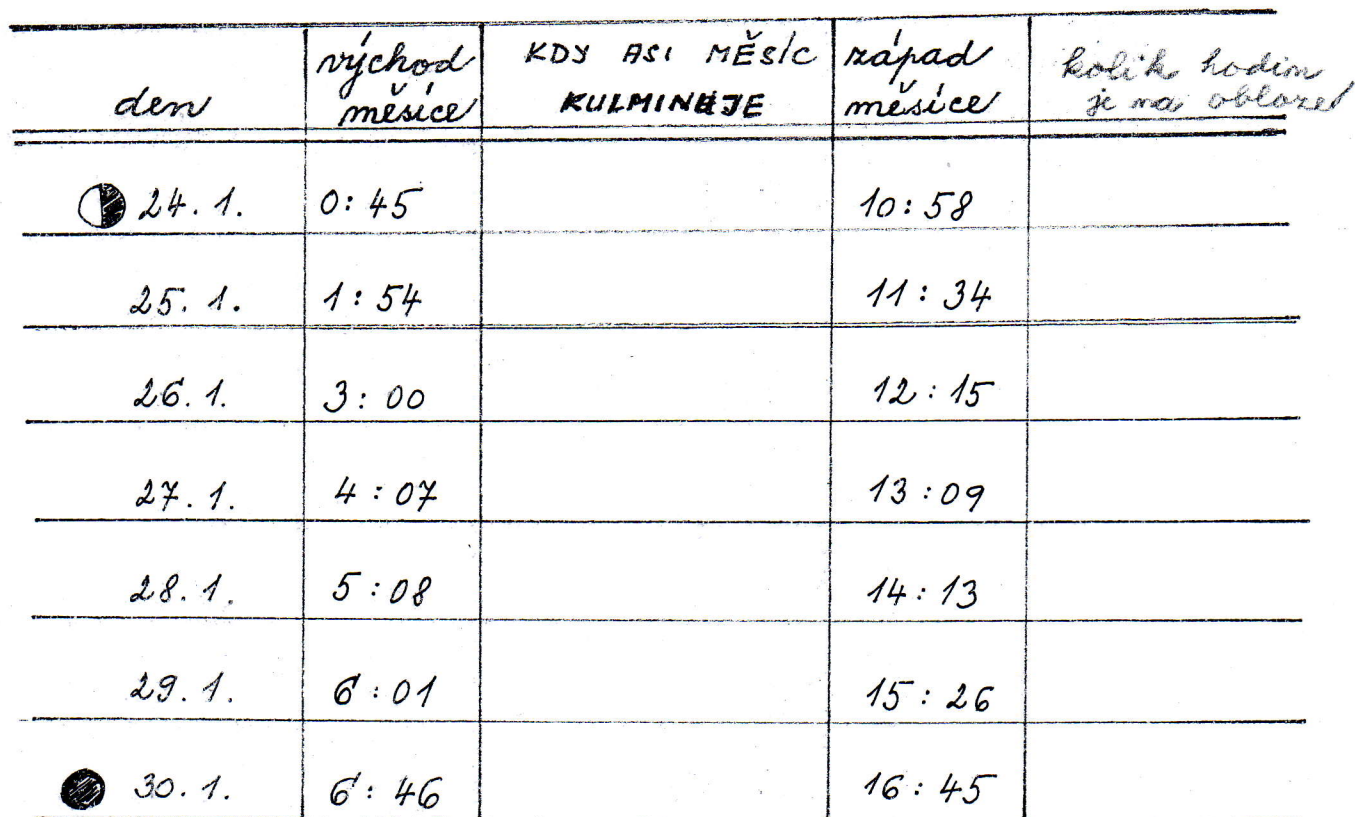 den
východ
měsíce
KDY ASI MĚSÍC
KULMINUJE
západ
měsíce
kolik hodin
je na obloze
24. 1. 0:45 10:58
25. 1. 1:54 11:34
26. 1. 3:00 12:15
27. 1. 4:07 13:09
28. 1. 5:08 14:13
29. 1. 6:01 15:26
30. 1. 6:46 16:45